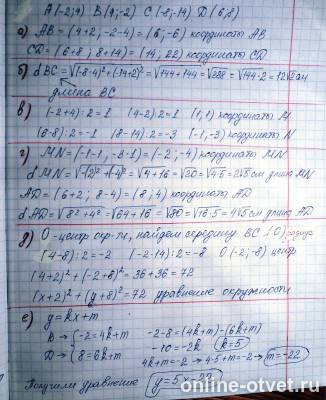 A(-2;4) B(4;-2) C(-8;-14) D(6;8)
а) AB = (4+2; -2-4) = (6; -6) координаты AB
CD = (6+8; 8+14) = (14; 22) координаты CD
б) d BC = √(-8-4)²+(-14+2)² = √144+144 = √288 = √144·2 = 12√2 см
длина BC
в) (-2+4):2=1 (4-2):2=1 (1;1) координаты M
(6-8):2=-1 (8-14):2=-3 (-1;-3) координаты N
г) MN = (-1-1; -3-1) = (-2; -4) координаты MN
d MN = √(-2)²+(-4)² = √4+16 = √20 = √4·5 = 2√5 см длина MN
AD = (6+2; 8-4) = (8; 4) координаты AD
d AD = √8²+4² = √64+16 = √80 = √16·5 = 4√5 см длина AD
д) O-центр окр-ти, найдем середину BC (O)
(4-8):2=-2 (-2-14):2=-8 O(-2;-8) центр
(4+2)²+(-2+8)²=36+36=72
(x+2)²+(y+8)²=72 уравнение окружности
е) y=kx+m
-2=4k+m -2-8=(4k+m)-(6k+m)
D→ 8=6k+m -10=-2k k=5
4k+m=-2→4·5+m=-2→ m=-22
Получили уравнение y=5x-22
online-otvet.ru